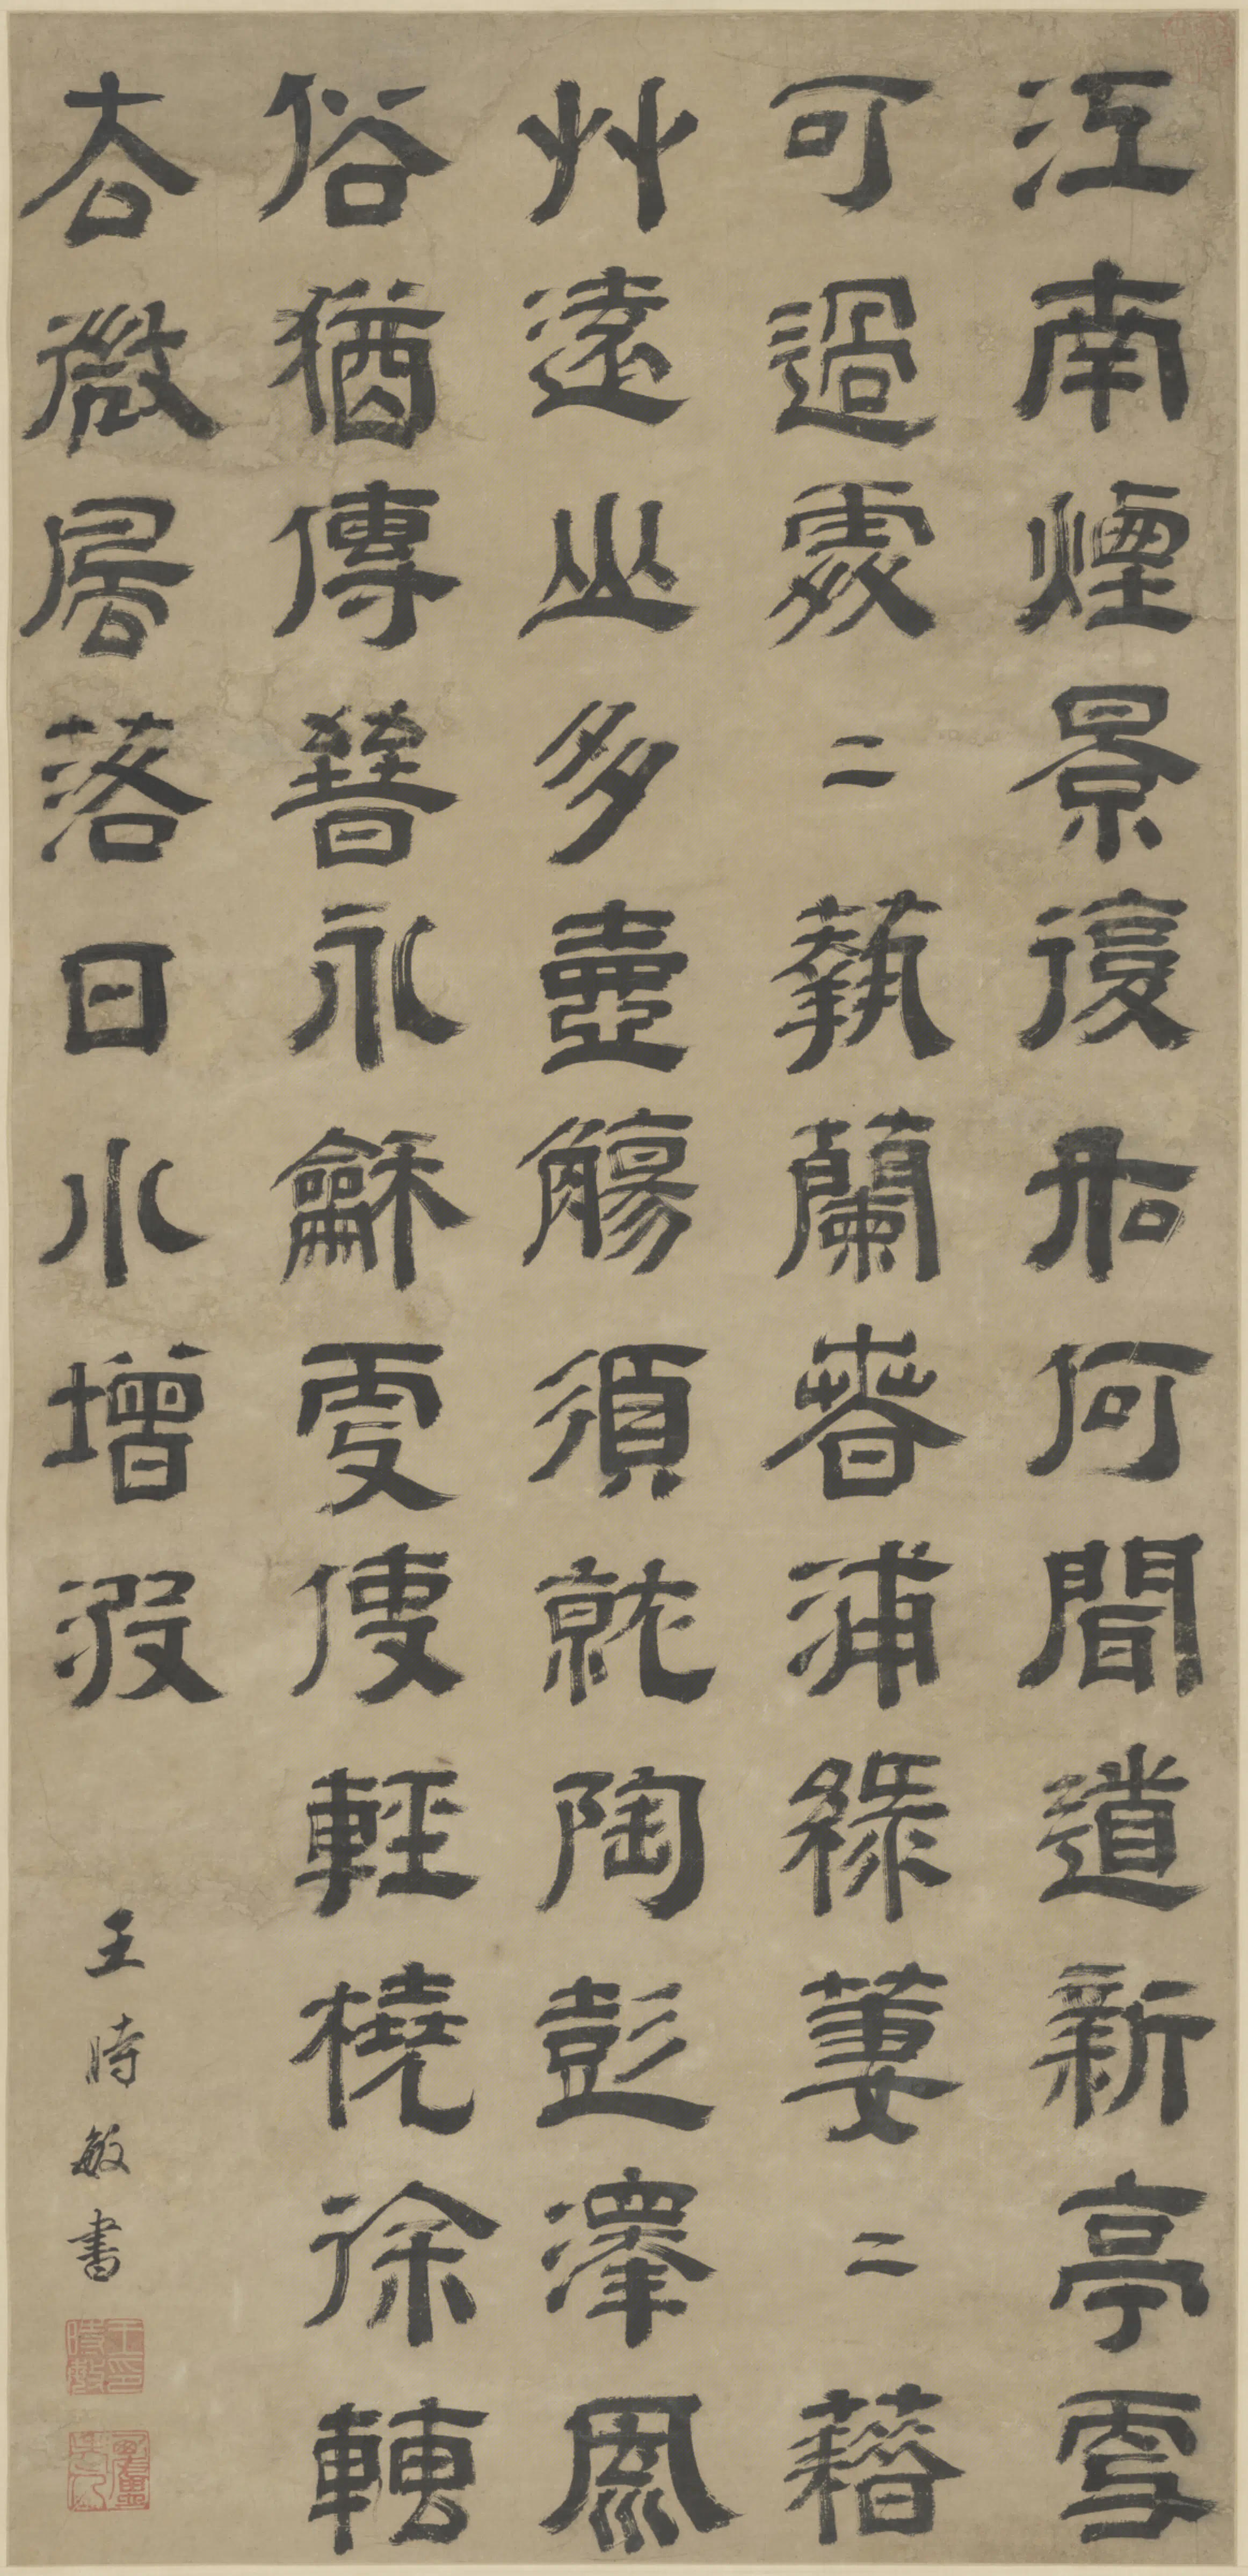 江南煙景復如何聞道新亭更
可過處二蓺蘭春浦綠萋二藉
艸遠山多壺觴須就陶彭澤風
俗猶傳晉永龢更使輕橈徐轉
去微風落日水增波
王時敏書
王印時敏